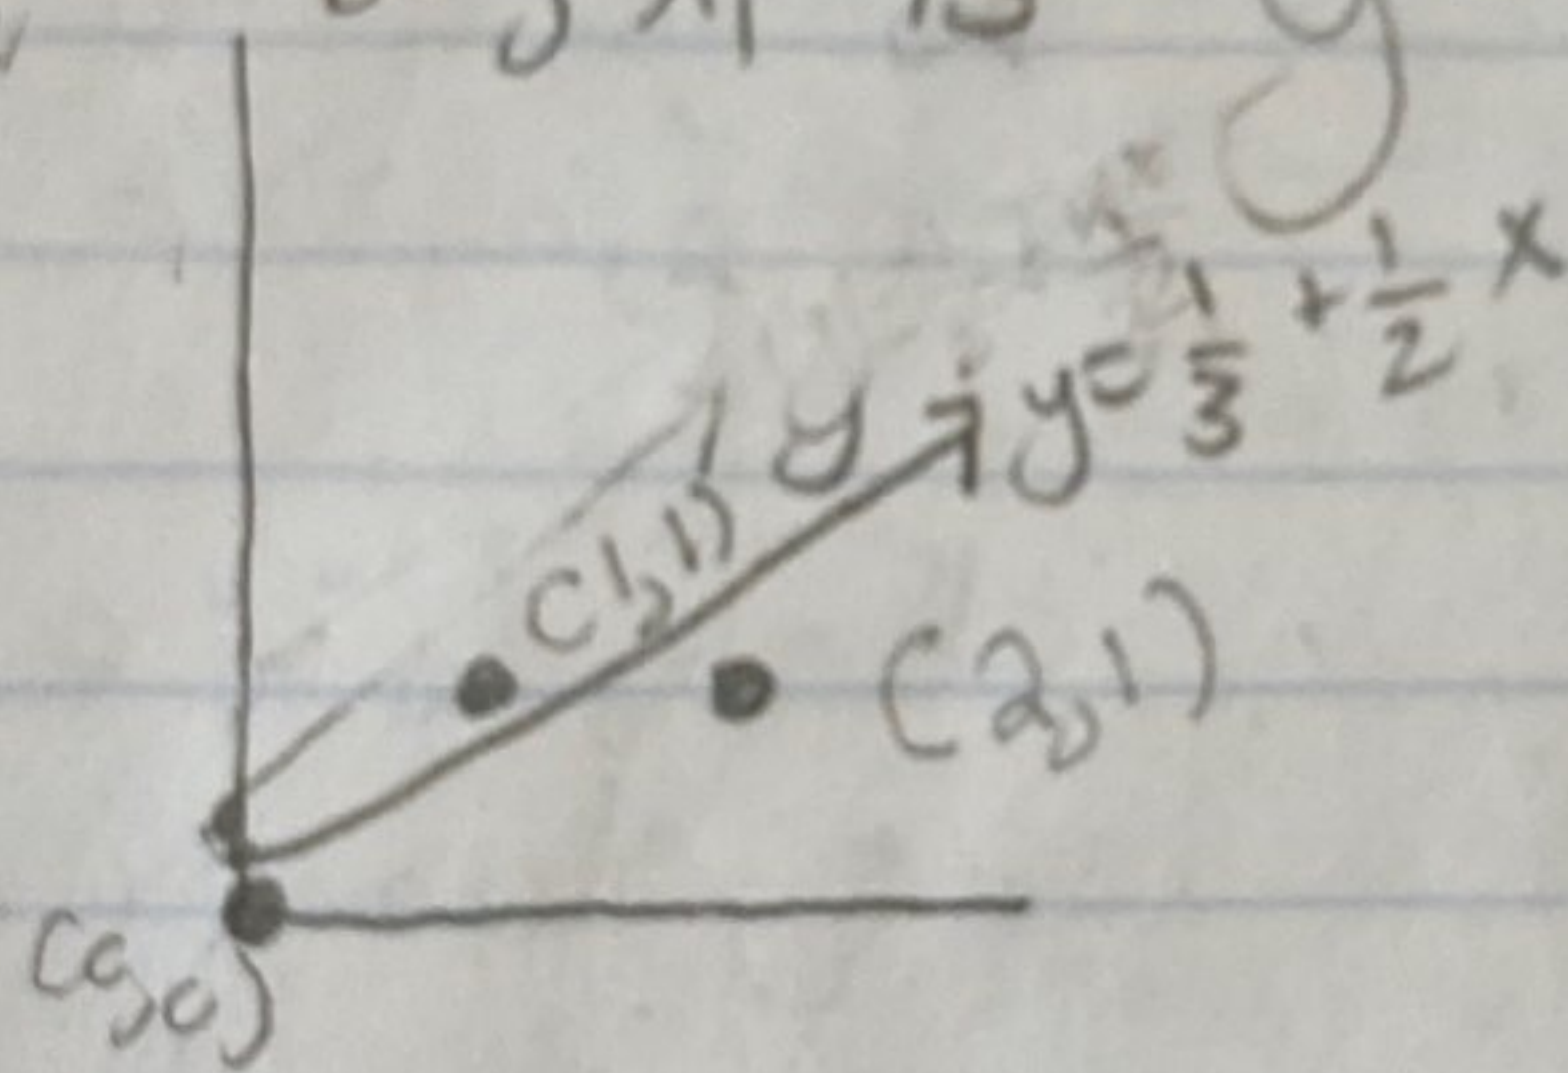 y = 1/3 + 1/2 x
(1,1) y
(2,1)
(0,0)